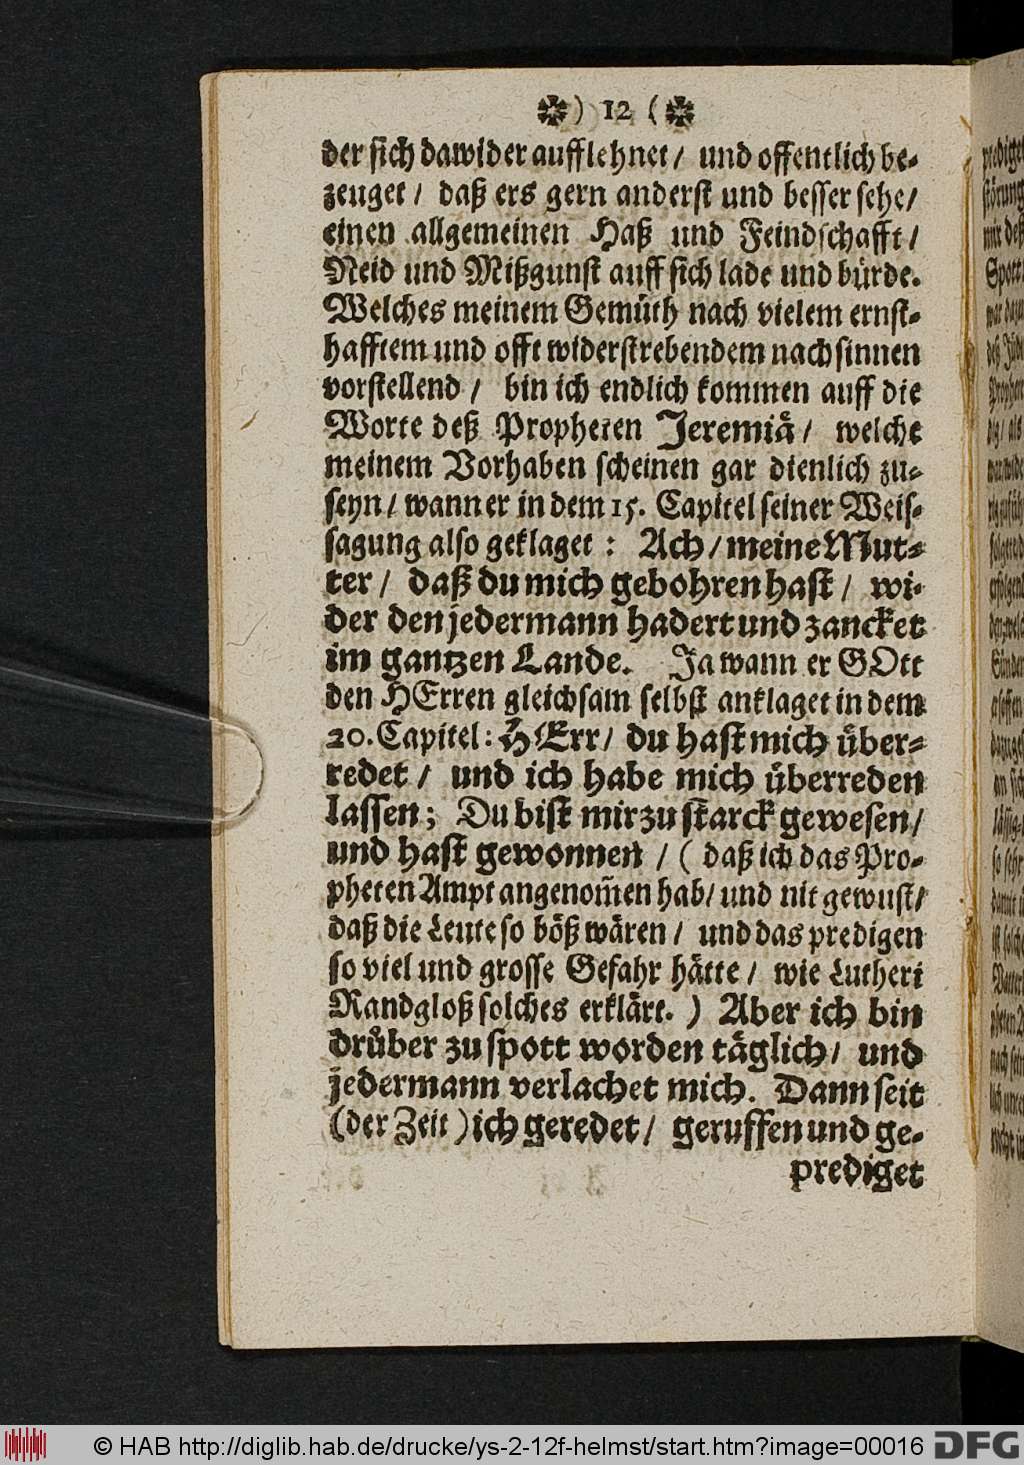 ) 12 (
der sich dawider aufflehnet / und offentlich be-
zeuget / daß ers gern anderst und besser sehe /
einen allgemeinen Haß und Feindschafft /
Neid und Mißgunst auff sich lade und bürde.
Welches meinem Gemüth nach vielem ernst-
hafftem und offt widerstrebendem nachsinnen
vorstellend / bin ich endlich kommen auff die
Worte deß Propheten Jeremiä / welche
meinem Vorhaben scheinen gar dienlich zu-
seyn / wann er in dem 15. Capitel seiner Weis-
sagung also geklaget : Ach / meine Mut-
ter / daß du mich gebohren hast / wi-
der den jedermann hadert und zancket
im gantzen Lande. Ja wann er GOtt
den HErren gleichsam selbst anklaget in dem
20. Capitel: HErr / du hast mich über-
redet / und ich habe mich überreden
lassen; Du bist mir zu starck gewesen /
und hast gewonnen / ( daß ich das Pro-
pheten Ampt angenom̃en hab / und nit gewust /
daß die Leute so böß wären / und das predigen
so viel und grosse Gefahr hätte / wie Lutheri
Randgloß solches erklärt. ) Aber ich bin
drůber zu spott worden täglich / und
jedermann verlachet mich. Dann seit
(der Zeit ) ich geredet / geruffen und ge-
prediget
© HAB http://diglib.hab.de/drucke/ys-2-12f-helmst/start.htm?image=00016
DFG